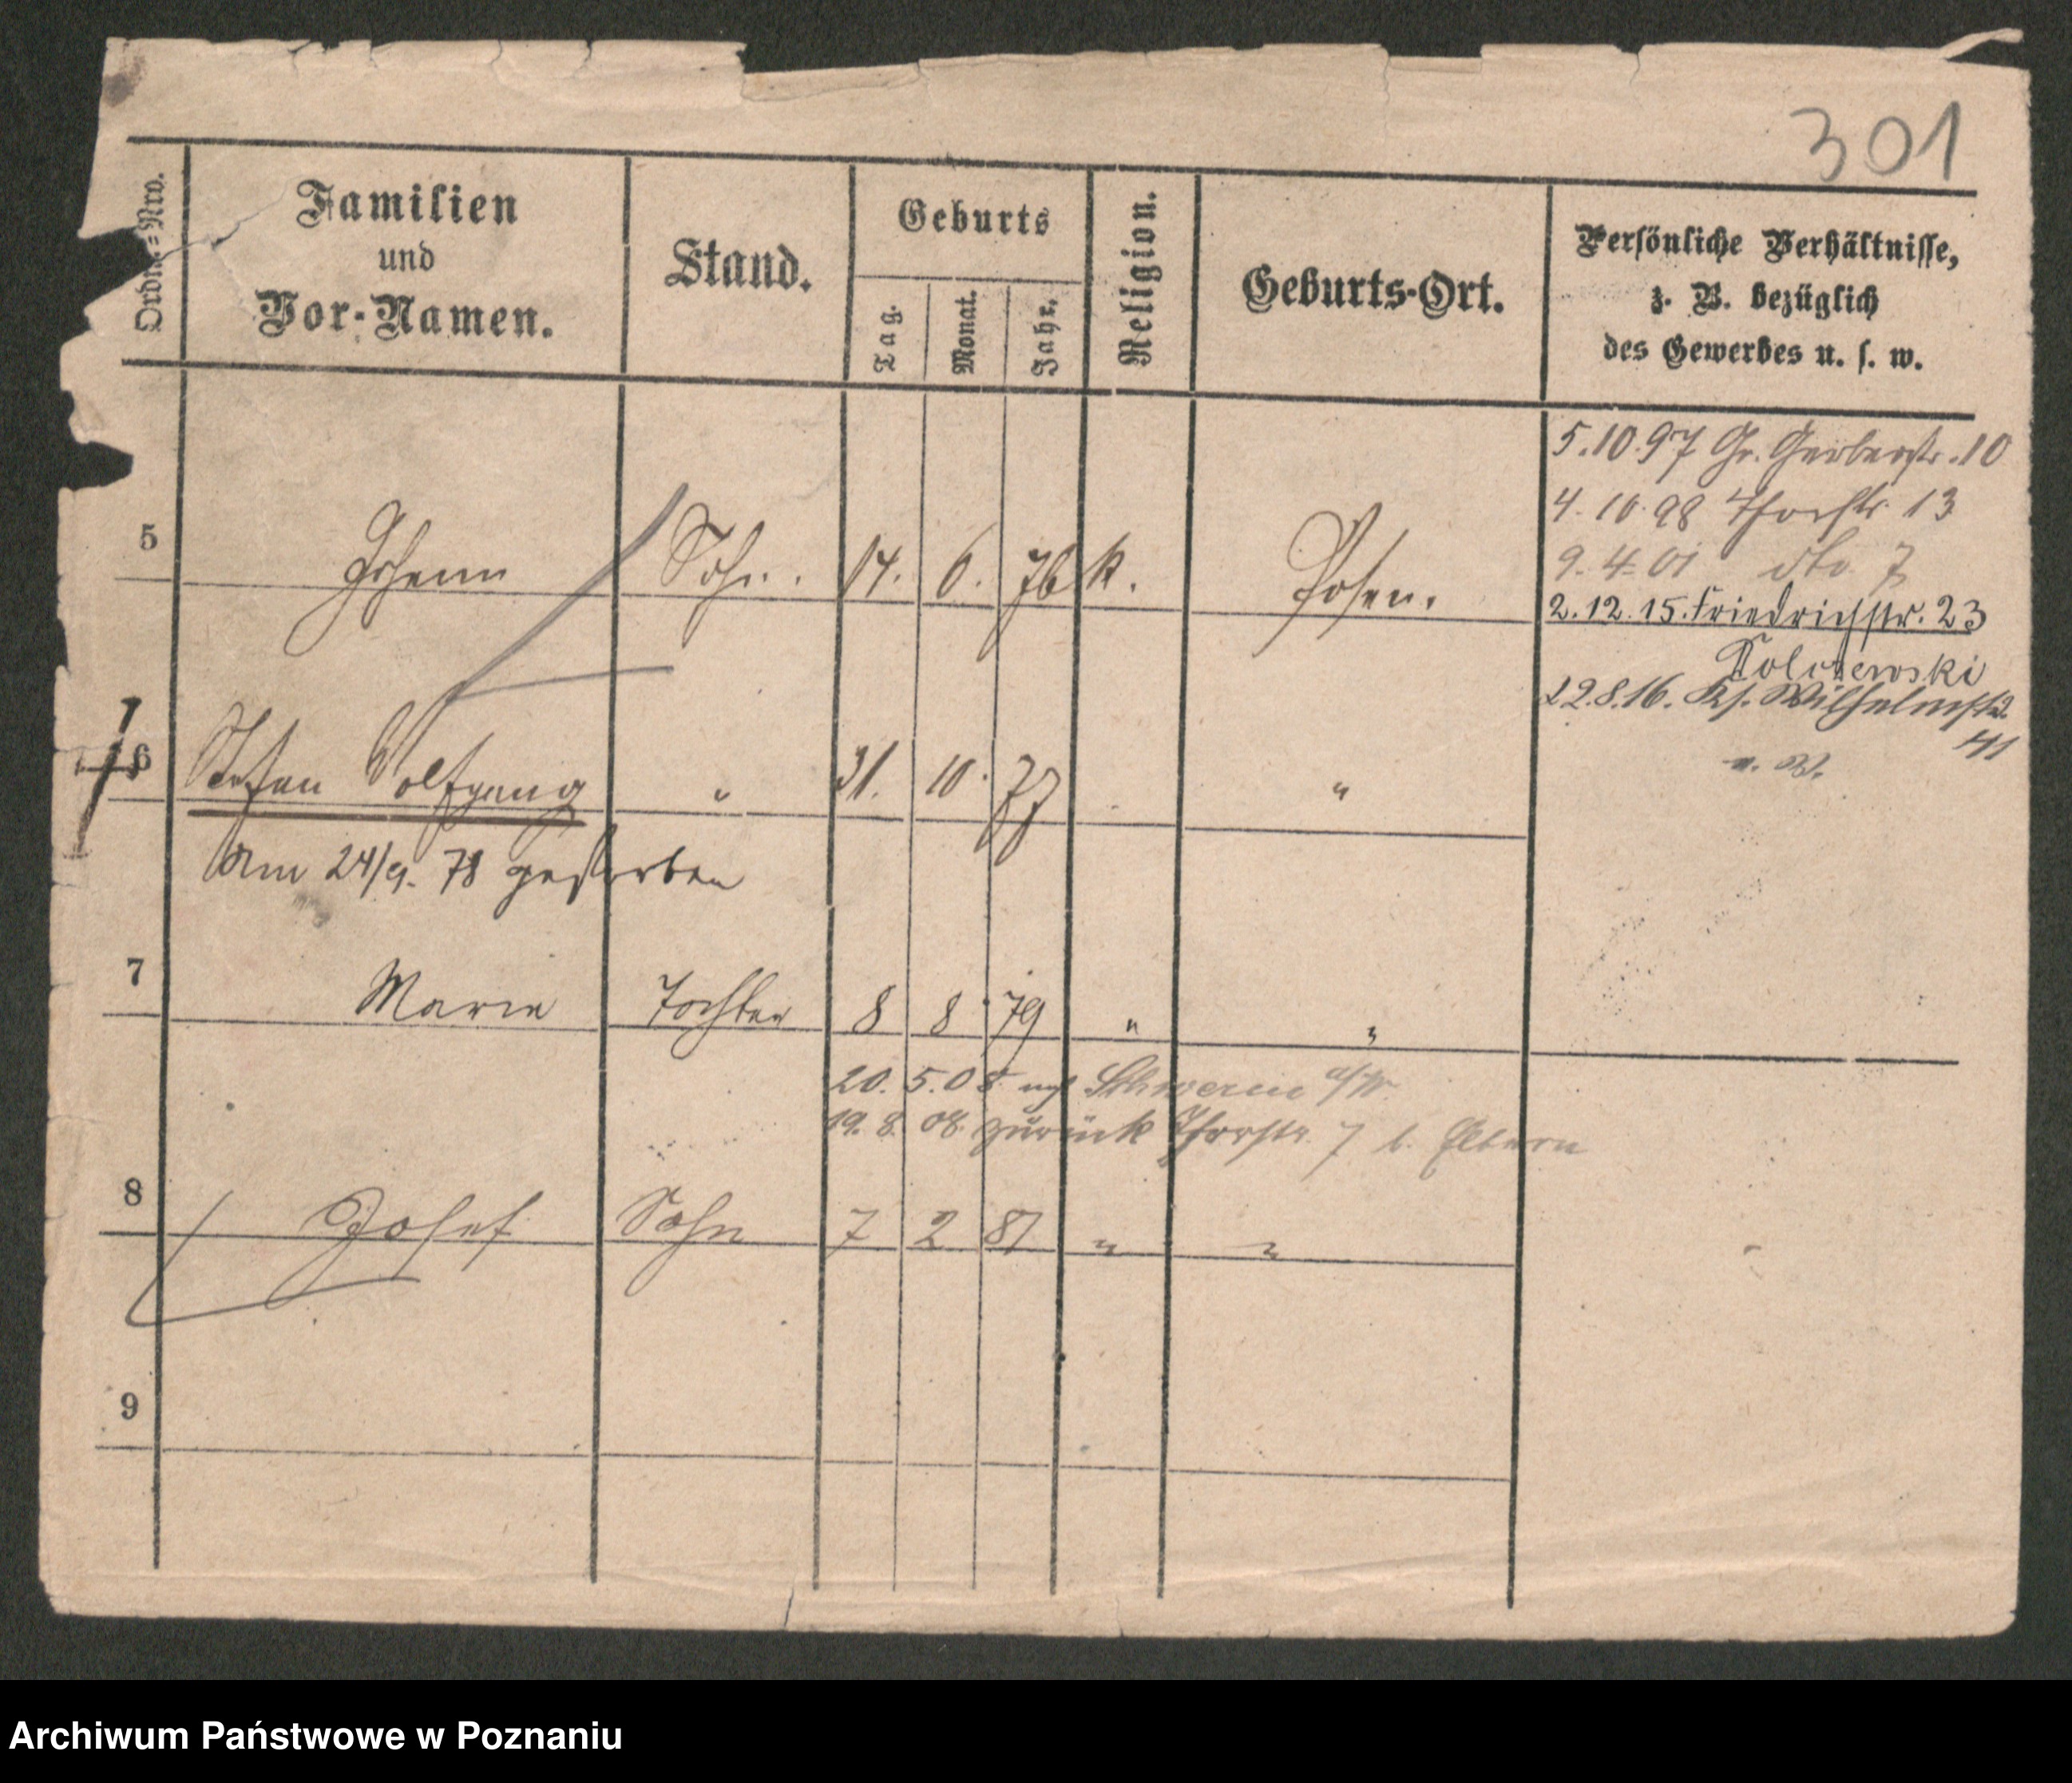 301
Ordn.-Nro.
Familien
und
Vor-Namen.
Stand.
Geburts
Tag.
Monat.
Jahr.
Religion.
Geburts-Ort.
Persönliche Verhältnisse,
z. B. bezüglich
des Gewerbes u. s. w.
5.10.97 Gr. Gerberstr. 10
4.10.98 Thorstr. 13
9.4.01 dto. 7
2.12.15. Friedrichstr. 23
22.8.16. Kg. Wilhelmstr.
41
5 Johann Sohn. 14. 6. 76 k. Posen.
6 Stefan Wolfgang " 31. 10. 77 "
Am 24/9. 78 gestorben
7 Marie Tochter 8 8 79 " "
20. 5. 08 Schwerin a/W.
19. 8. 08. zurück Thorstr. 7 b. Eltern
8 Josef Sohn 7 2 81 " "
9
Archiwum Państwowe w Poznaniu